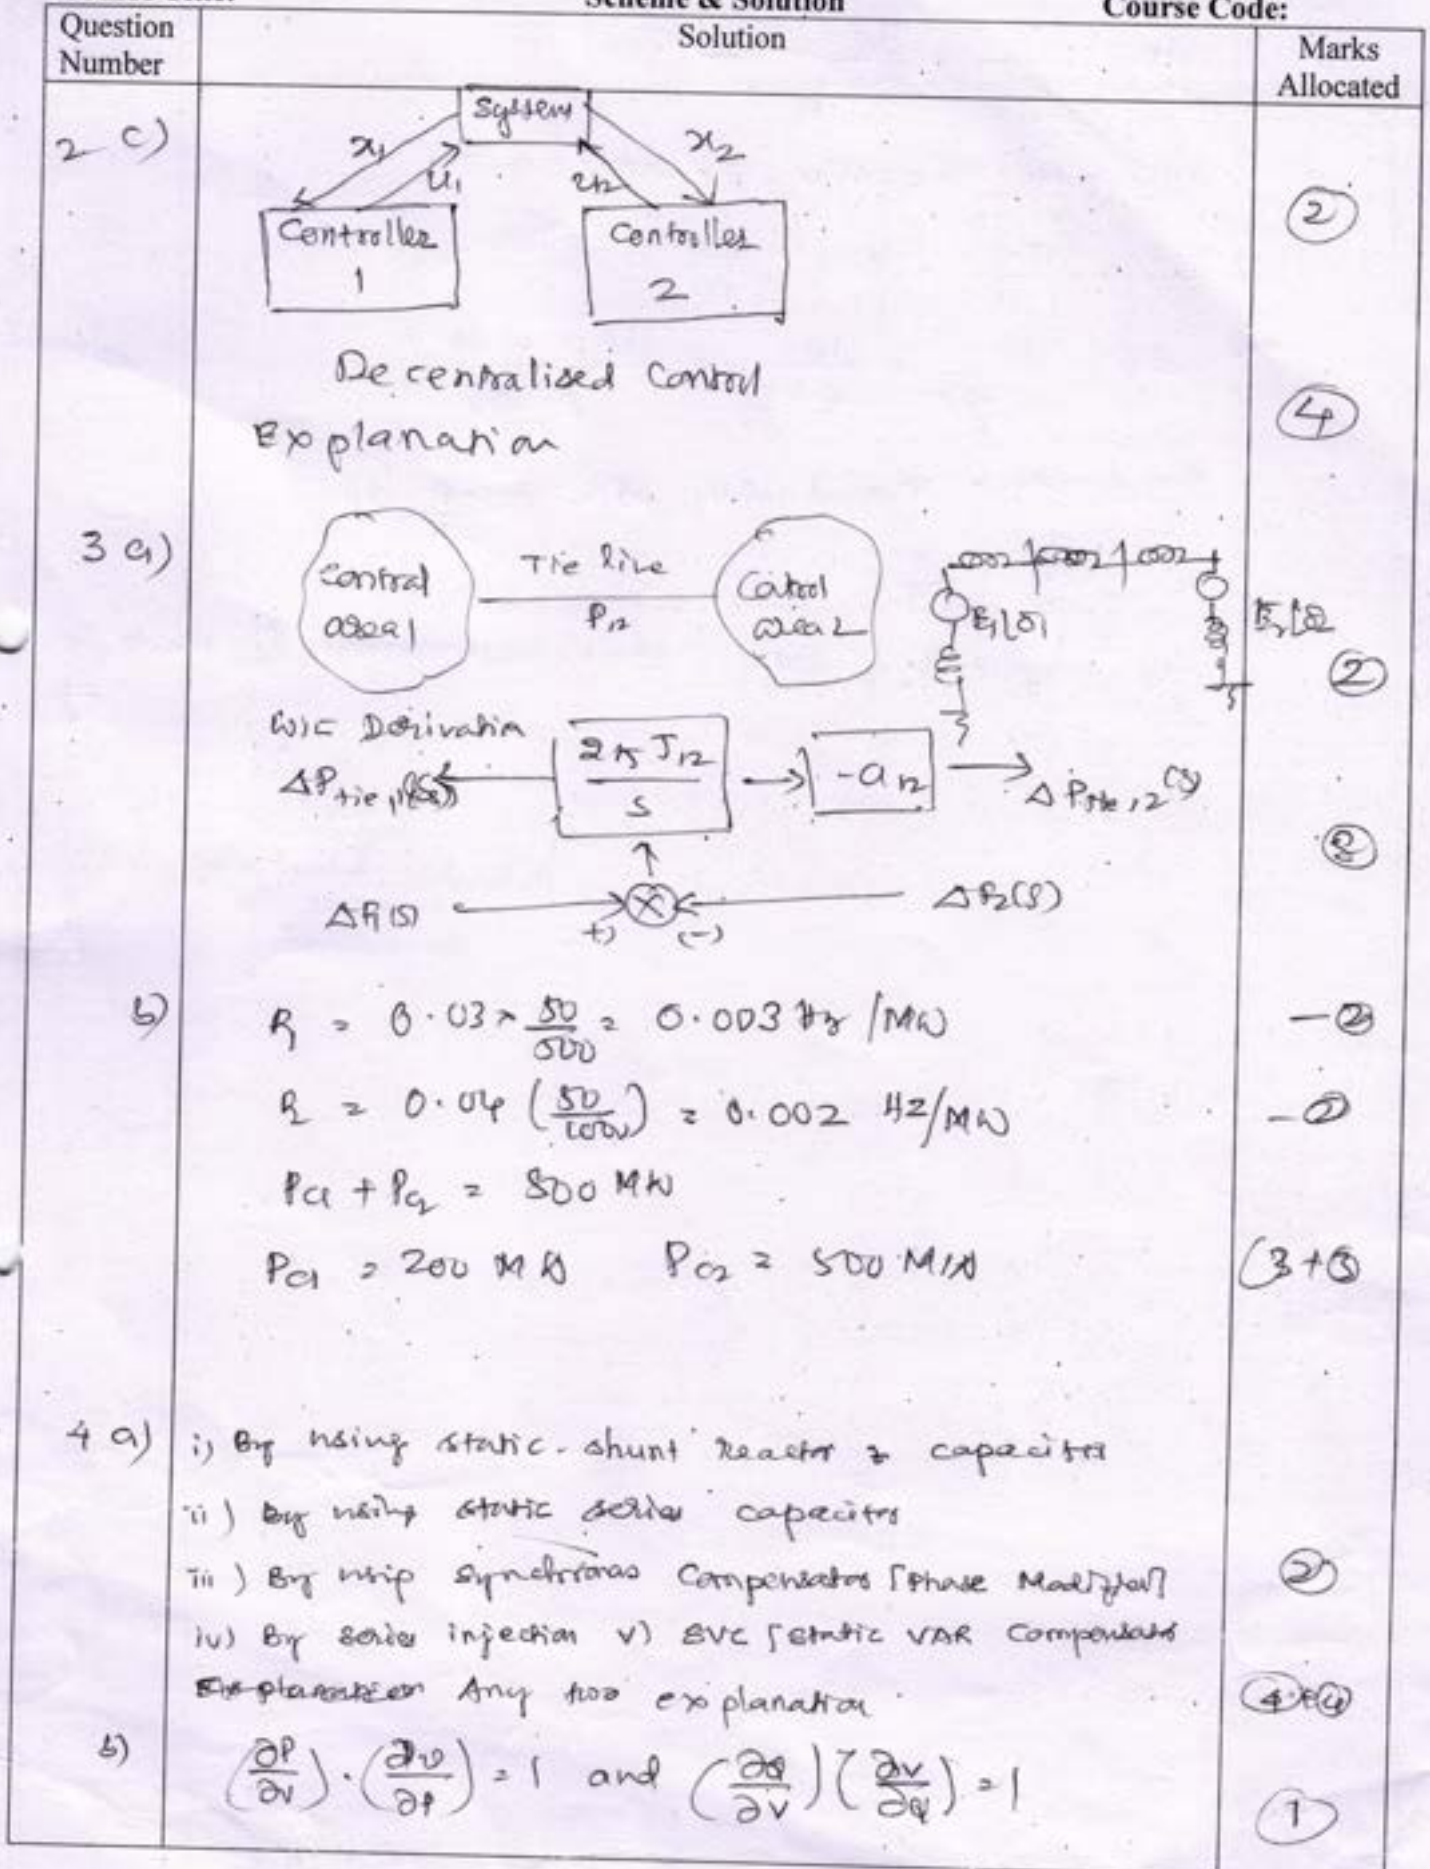 Scheme & Solution
Course Code:
Question Number
Solution
Marks Allocated
2 c)
System
x1
u1
u2
x2
Controller 1
Controller 2
(2)
Decentralised Control
(4)
Explanation
3 a)
Control area 1
Tie line
P12
Control area 2
E1∠δ1
E2∠δ2
(2)
Derivation
ΔPtie,1(s)
2π T12 / s
-a12
ΔPtie,2(s)
ΔF1(s)
(+)
(-)
ΔF2(s)
b)
R1 = 0.03 × 50/500 = 0.003 Hz/MW
-(2)
R2 = 0.04 (50/1000) = 0.002 Hz/MW
-(2)
PG1 + PG2 = 500 MW
PG1 = 200 MW PG2 = 500 MW
(3+3)
4 a)
i) By using static shunt Reactor & capacitor
ii) By using static series capacitor
iii) By using Synchronous Compensator [Phase Modifier]
(2)
iv) By series injection v) SVC [Static VAR Compensator
Explanation Any two explanation
(4+4)
b)
(∂P/∂V) · (∂V/∂P) = 1 and (∂Q/∂V) (∂V/∂Q) = 1
(1)